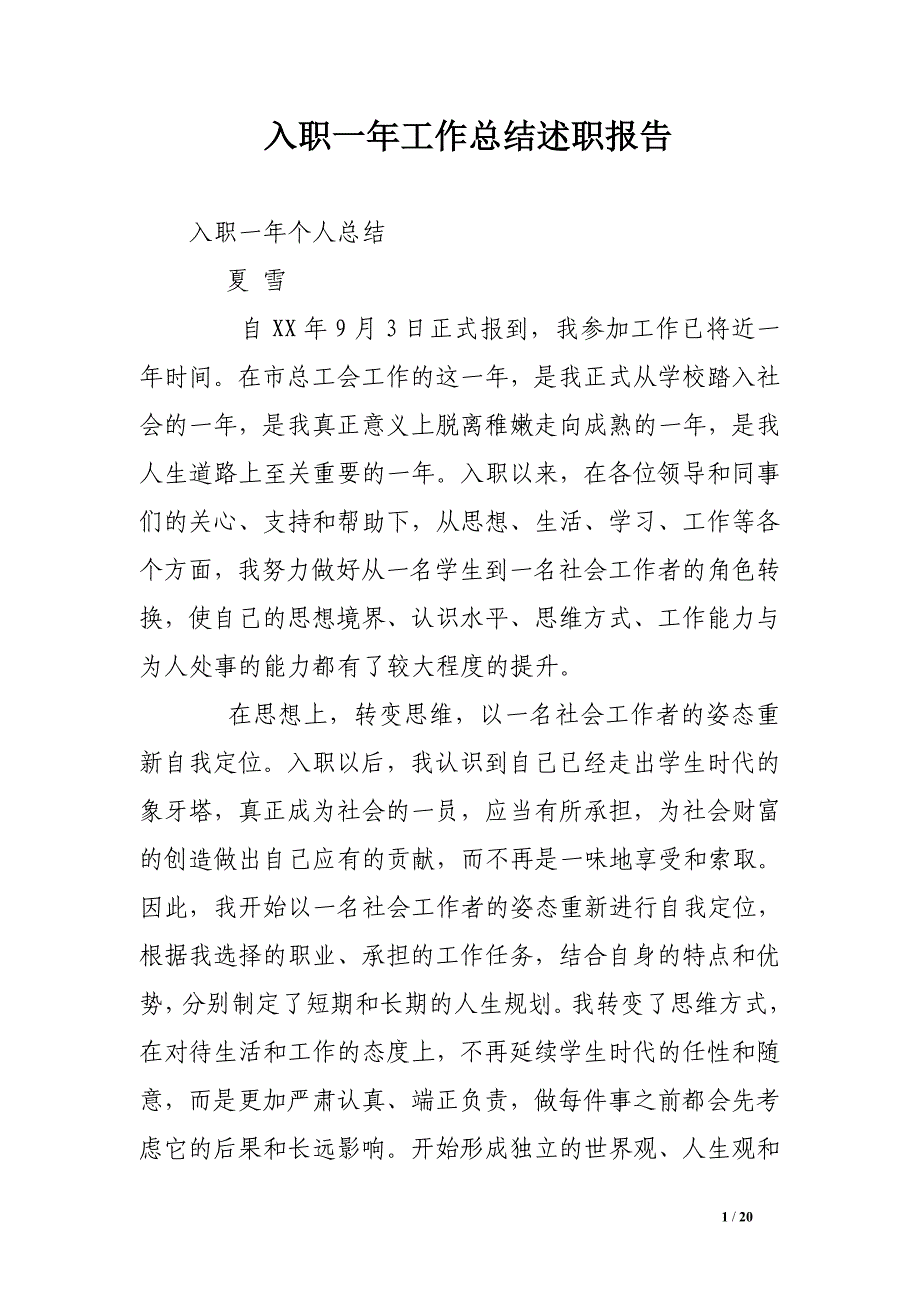 入职一年工作总结述职报告
入职一年个人总结
夏 雪
自 XX 年 9 月 3 日正式报到，我参加工作已将近一
年时间。在市总工会工作的这一年，是我正式从学校踏入社
会的一年，是我真正意义上脱离稚嫩走向成熟的一年，是我
人生道路上至关重要的一年。入职以来，在各位领导和同事
们的关心、支持和帮助下，从思想、生活、学习、工作等各
个方面，我努力做好从一名学生到一名社会工作者的角色转
换，使自己的思想境界、认识水平、思维方式、工作能力与
为人处事的能力都有了较大程度的提升。
在思想上，转变思维，以一名社会工作者的姿态重
新自我定位。入职以后，我认识到自己已经走出学生时代的
象牙塔，真正成为社会的一员，应当有所承担，为社会财富
的创造做出自己应有的贡献，而不再是一味地享受和索取。
因此，我开始以一名社会工作者的姿态重新进行自我定位，
根据我选择的职业、承担的工作任务，结合自身的特点和优
势，分别制定了短期和长期的人生规划。我转变了思维方式，
在对待生活和工作的态度上，不再延续学生时代的任性和随
意，而是更加严肃认真、端正负责，做每件事之前都会先考
虑它的后果和长远影响。开始形成独立的世界观、人生观和
1 / 20